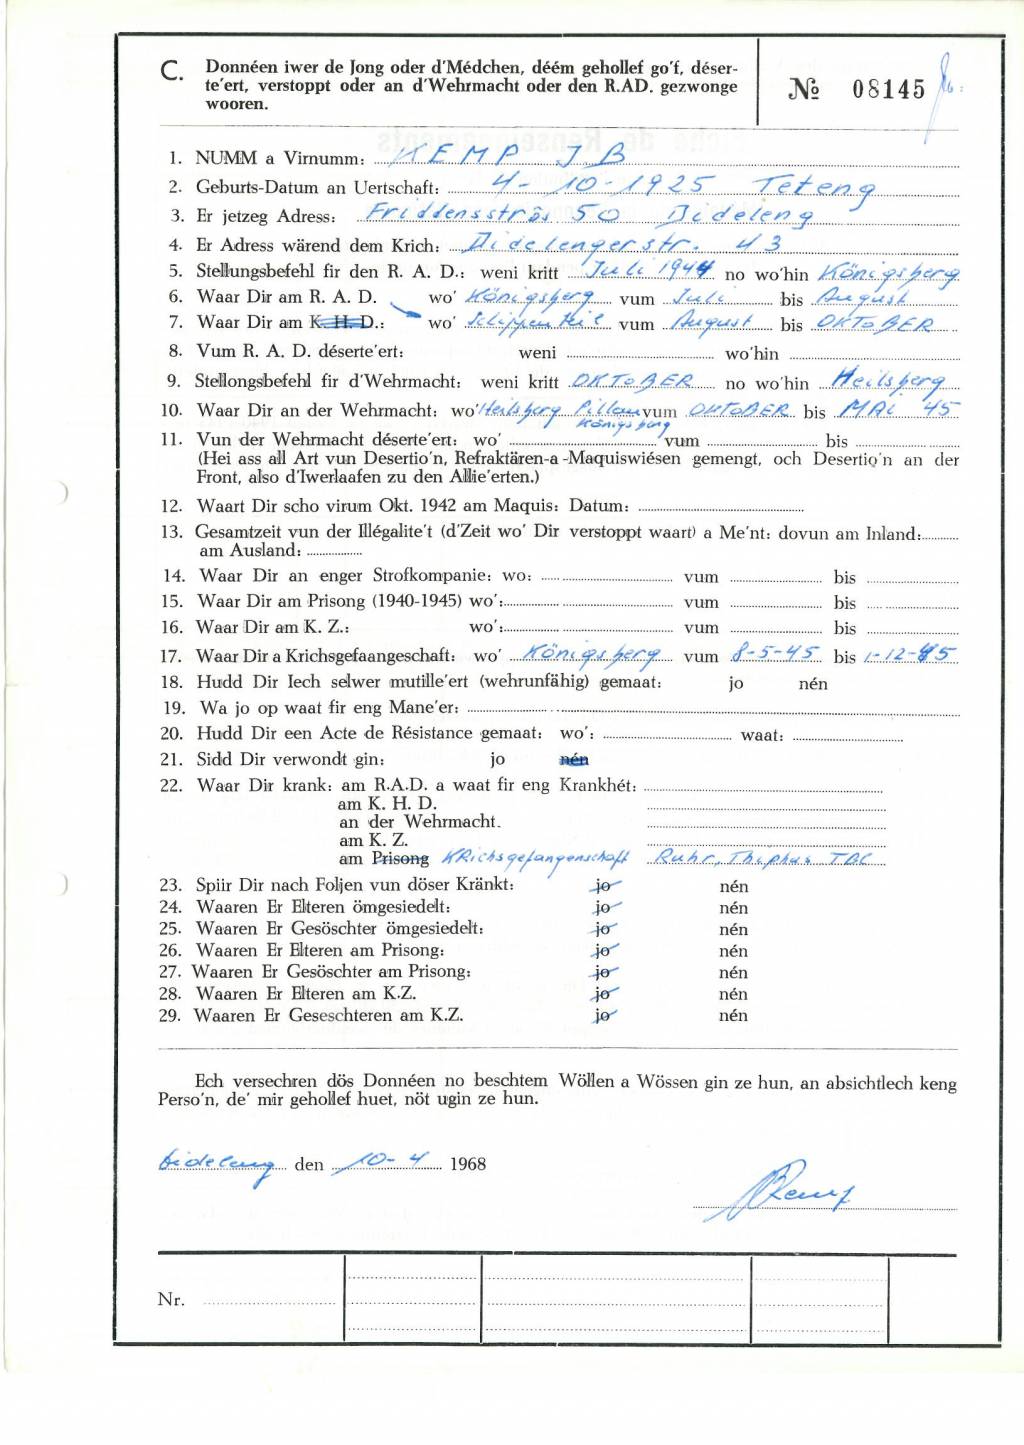 C. Donnéen iwer de Jong oder d'Médchen, déém gehollef go'f, déser-
te'ert, verstoppt oder an d'Wehrmacht oder den R.AD. gezwonge
wooren.
№ 08145
1. NUMM a Virnumm: KEMP J B
2. Geburts-Datum an Uertschaft: 4-10-1925 Teteng
3. Er jetzeg Adress: Friddensstrôs 50 Dideleng
4. Er Adress wärend dem Krich: Didelengerstr. 43
5. Stellungsbefehl fir den R. A. D.: weni kritt Juli 1944 no wo'hin Königsberg
6. Waar Dir am R. A. D. wo' Königsberg vum Juli bis August
7. Waar Dir am K. H. D.: wo' vum August bis OKTOBER
8. Vum R. A. D. déserte'ert: weni wo'hin
9. Stellongsbefehl fir d'Wehrmacht: weni kritt OKTOBER no wo'hin Heilsberg
10. Waar Dir an der Wehrmacht: wo' Heilsberg Pillau vum OKTOBER bis MAI 45
Königsberg
11. Vun der Wehrmacht déserte'ert: wo' vum bis
(Hei ass all Art vun Desertio'n, Refraktären-a-Maquiswiésen gemengt, och Desertio'n an der
Front, also d'Iwerlaafen zu den Allie'erten.)
12. Waart Dir scho virum Okt. 1942 am Maquis: Datum:
13. Gesamtzeit vun der Illégalite't (d'Zeit wo' Dir verstoppt waart) a Me'nt: dovun am Inland:
am Ausland:
14. Waar Dir an enger Strofkompanie: wo: vum bis
15. Waar Dir am Prisong (1940-1945) wo': vum bis
16. Waar Dir am K. Z.: wo': vum bis
17. Waar Dir a Krichsgefaangeschaft: wo' Königsberg vum 8-5-45 bis 1-12-45
18. Hudd Dir Iech selwer mutille'ert (wehrunfähig) gemaat: jo nén
19. Wa jo op waat fir eng Mane'er:
20. Hudd Dir een Acte de Résistance gemaat: wo': waat:
21. Sidd Dir verwondt gin: jo nén
22. Waar Dir krank: am R.A.D. a waat fir eng Krankhét:
am K. H. D.
an der Wehrmacht.
am K. Z.
am Prisong KRichsgefangenschaft Ruhr, Thiphus TBC
23. Spiir Dir nach Foljen vun döser Kränkt: jo nén
24. Waaren Er Elteren ömgesiedelt: jo nén
25. Waaren Er Gesöschter ömgesiedelt: jo nén
26. Waaren Er Elteren am Prisong: jo nén
27. Waaren Er Gesöschter am Prisong: jo nén
28. Waaren Er Elteren am K.Z. jo nén
29. Waaren Er Geseschteren am K.Z. jo nén
Ech versechren dös Donnéen no beschtem Wöllen a Wössen gin ze hun, an absichtlech keng
Perso'n, de' mir gehollef huet, nöt ugin ze hun.
Dideleng den 10-4 1968
Kemp
Nr.